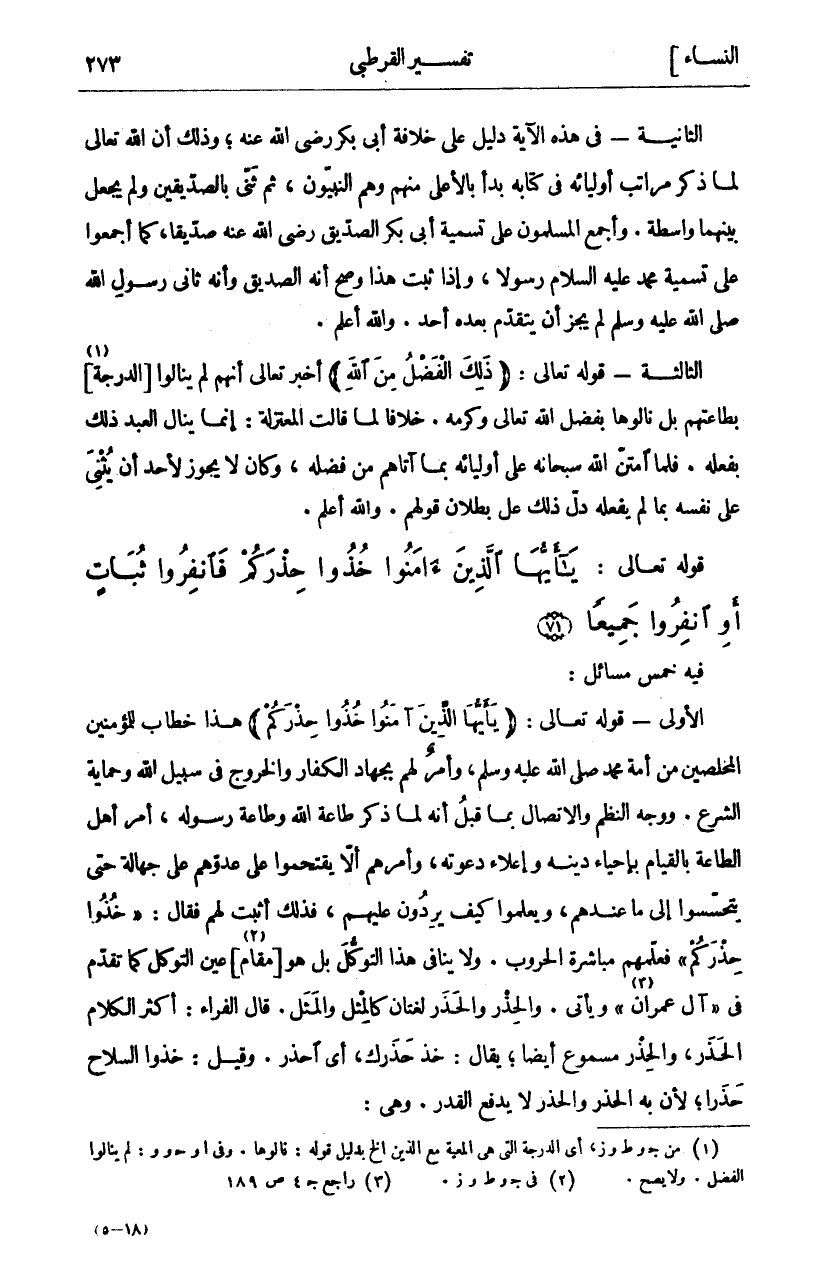 النساء] تفسير القرطبى ٢٧٣
الثانية — فى هذه الآية دليل على خلافة أبى بكر رضى الله عنه ؛ وذلك أن الله تعالى
لما ذكر مراتب أوليائه فى كتابه بدأ بالأعلى منهم وهم النبيّون ، ثم ثَنّى بالصدّيقين ولم يجعل
بينهما واسطة . وأجمع المسلمون على تسمية أبى بكر الصديق رضى الله عنه صدّيقا، كما أجمعوا
على تسمية محمد عليه السلام رسولا ، وإذا ثبت هذا وصح أنه الصديق وأنه ثانى رسول الله
صلى الله عليه وسلم لم يجز أن يتقدّم بعده أحد . والله أعلم .
الثالثة — قوله تعالى : ﴿ ذَلِكَ الْفَضْلُ مِنَ ٱللَّهِ ﴾ أخبر تعالى أنهم لم ينالوا [الدرجة] (١)
بطاعتهم بل نالوها بفضل الله تعالى وكرمه . خلافا لما قالت المعتزلة : إنما ينال العبد ذلك
بفعله . فلما ٱمتنّ الله سبحانه على أوليائه بما آتاهم من فضله ، وكان لا يجوز لأحد أن يُثْنِىَ
على نفسه بما لم يفعله دلّ ذلك على بطلان قولهم . والله أعلم .
قوله تعالى : يَـٰٓأَيُّهَا ٱلَّذِينَ ءَامَنُوا خُذُوا حِذْرَكُمْ فَٱنفِرُوا ثُبَاتٍ
أَوِ ٱنفِرُوا جَمِيعًا ﴿٧١﴾
فيه خمس مسائل :
الأولى — قوله تعالى : ﴿ يَأَيُّهَا الَّذِينَ آمَنُوا خُذُوا حِذْرَكُمْ ﴾ هذا خطاب للمؤمنين
المخلصين من أمة محمد صلى الله عليه وسلم، وأمرٌ لهم بجهاد الكفار والخروج فى سبيل الله وحماية
الشرع . ووجه النظم والاتصال بما قبلُ أنه لما ذكر طاعة الله وطاعة رسوله ، أمر أهل
الطاعة بالقيام بإحياء دينه وإعلاء دعوته، وأمرهم ألّا يقتحموا على عدوّهم على جهالة حتى
يتحسّسوا إلى ما عندهم، ويعلموا كيف يردُون عليهم ، فذلك أثبت لهم فقال : « خُذُوا
حِذْرَكُمْ» فعلّمهم مباشرة الحروب . ولا ينافى هذا التوكُّلَ بل هو [مقام] (٢) عين التوكل كما تقدّم
فى «آل عمران» (٣) ويأتى . والحِذْر والحَذَر لغتان كالمِثْل والمَثَل . قال الفراء : أكثر الكلام
الحَذَر، والحِذْر مسموع أيضا ؛ يقال : خذ حَذَرك، أى ٱحذر . وقيل : خذوا السلاح
حَذَرا؛ لأن به الحذر والحذر لا يدفع القدر . وهى :
(١) من جـ و ط و ز، أى الدرجة التى هى المعية مع الذين الخ بدليل قوله : نالوها . وفى ا و حـ و و : لم ينالوا
الفضل . ولا يصح . (٢) فى جـ و ط و ز . (٣) راجع جـ ٤ ص ١٨٩
(٥—١٨)